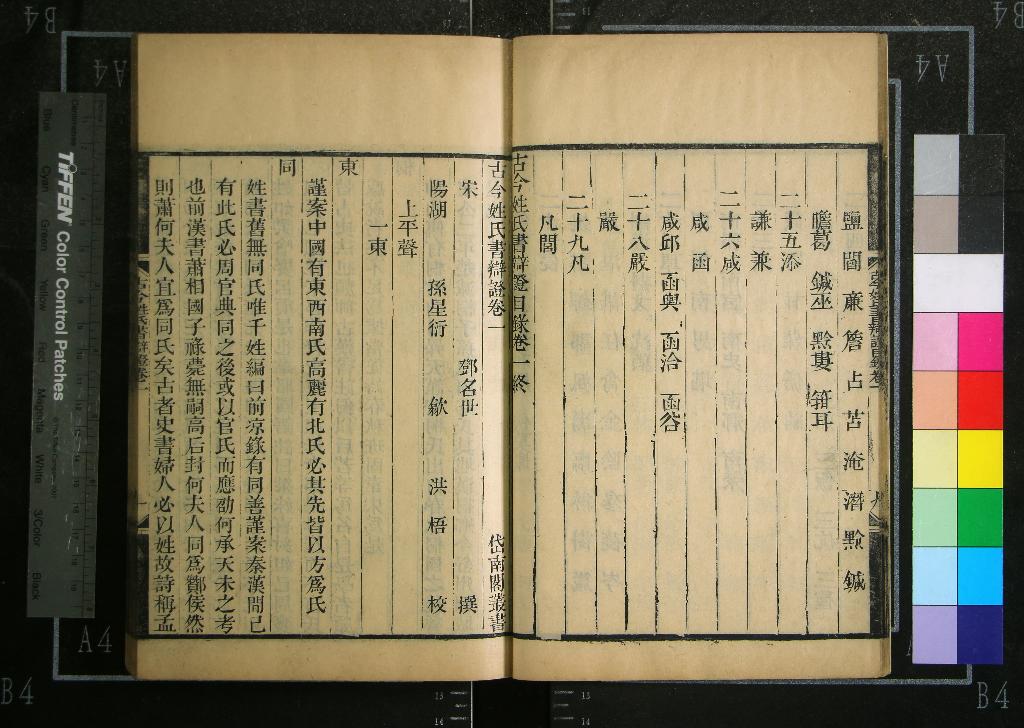 鹽 閻 廉 詹 占 苫 淹 潛 黔 鍼
瞻葛 鍼巫 黔婁 箝耳
二十五添
謙 兼
二十六咸
咸 函
咸邱 函輿 函洽 函谷
二十八嚴
嚴
二十九凡
凡閭
古今姓氏書辯證目錄卷一終
古今姓氏書辯證卷一 岱南閣叢書
宋 鄧名世 撰
陽湖 孫星衍 歙 洪 梧 校
上平聲
一東
東
謹案中國有東西南氏高麗有北氏必其先皆以方爲氏
同
姓書舊無同氏唯千姓編曰前涼錄有同善謹案秦漢間已
有此氏必周官典同之後或以官氏而應劭何承天未之考
也前漢書蕭相國子祿薨無嗣高后封何夫人同爲酇侯然
則蕭何夫人宜爲同氏矣古者史書婦人必以姓故詩稱孟
古今姓氏書辯證卷一
一
TIFFEN Color Control Patches
Blue
Cyan
Green
Yellow
Red
Magenta
White
3/Color
Black
Centimetres
B4
A4
B4
A4
A4
B4
B4
13
14
13
14